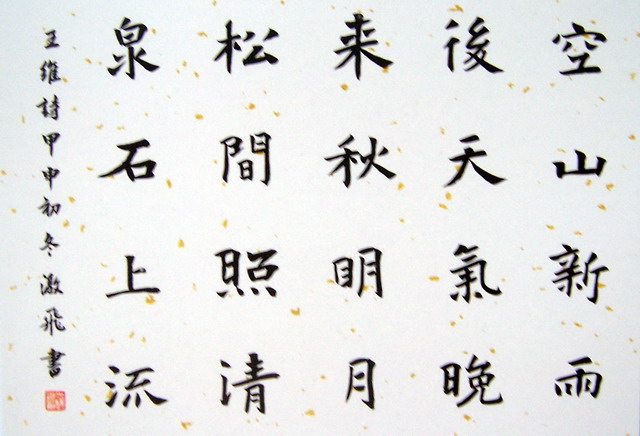 空山新雨
後天氣晚
来秋明月
松間照清
泉石上流
王維詩甲申初冬激飛書